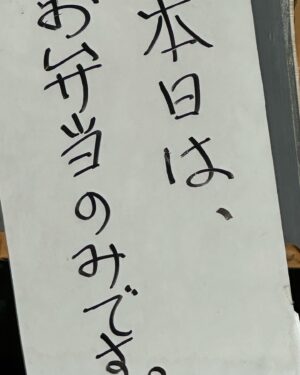 本日は、
お弁当のみです。